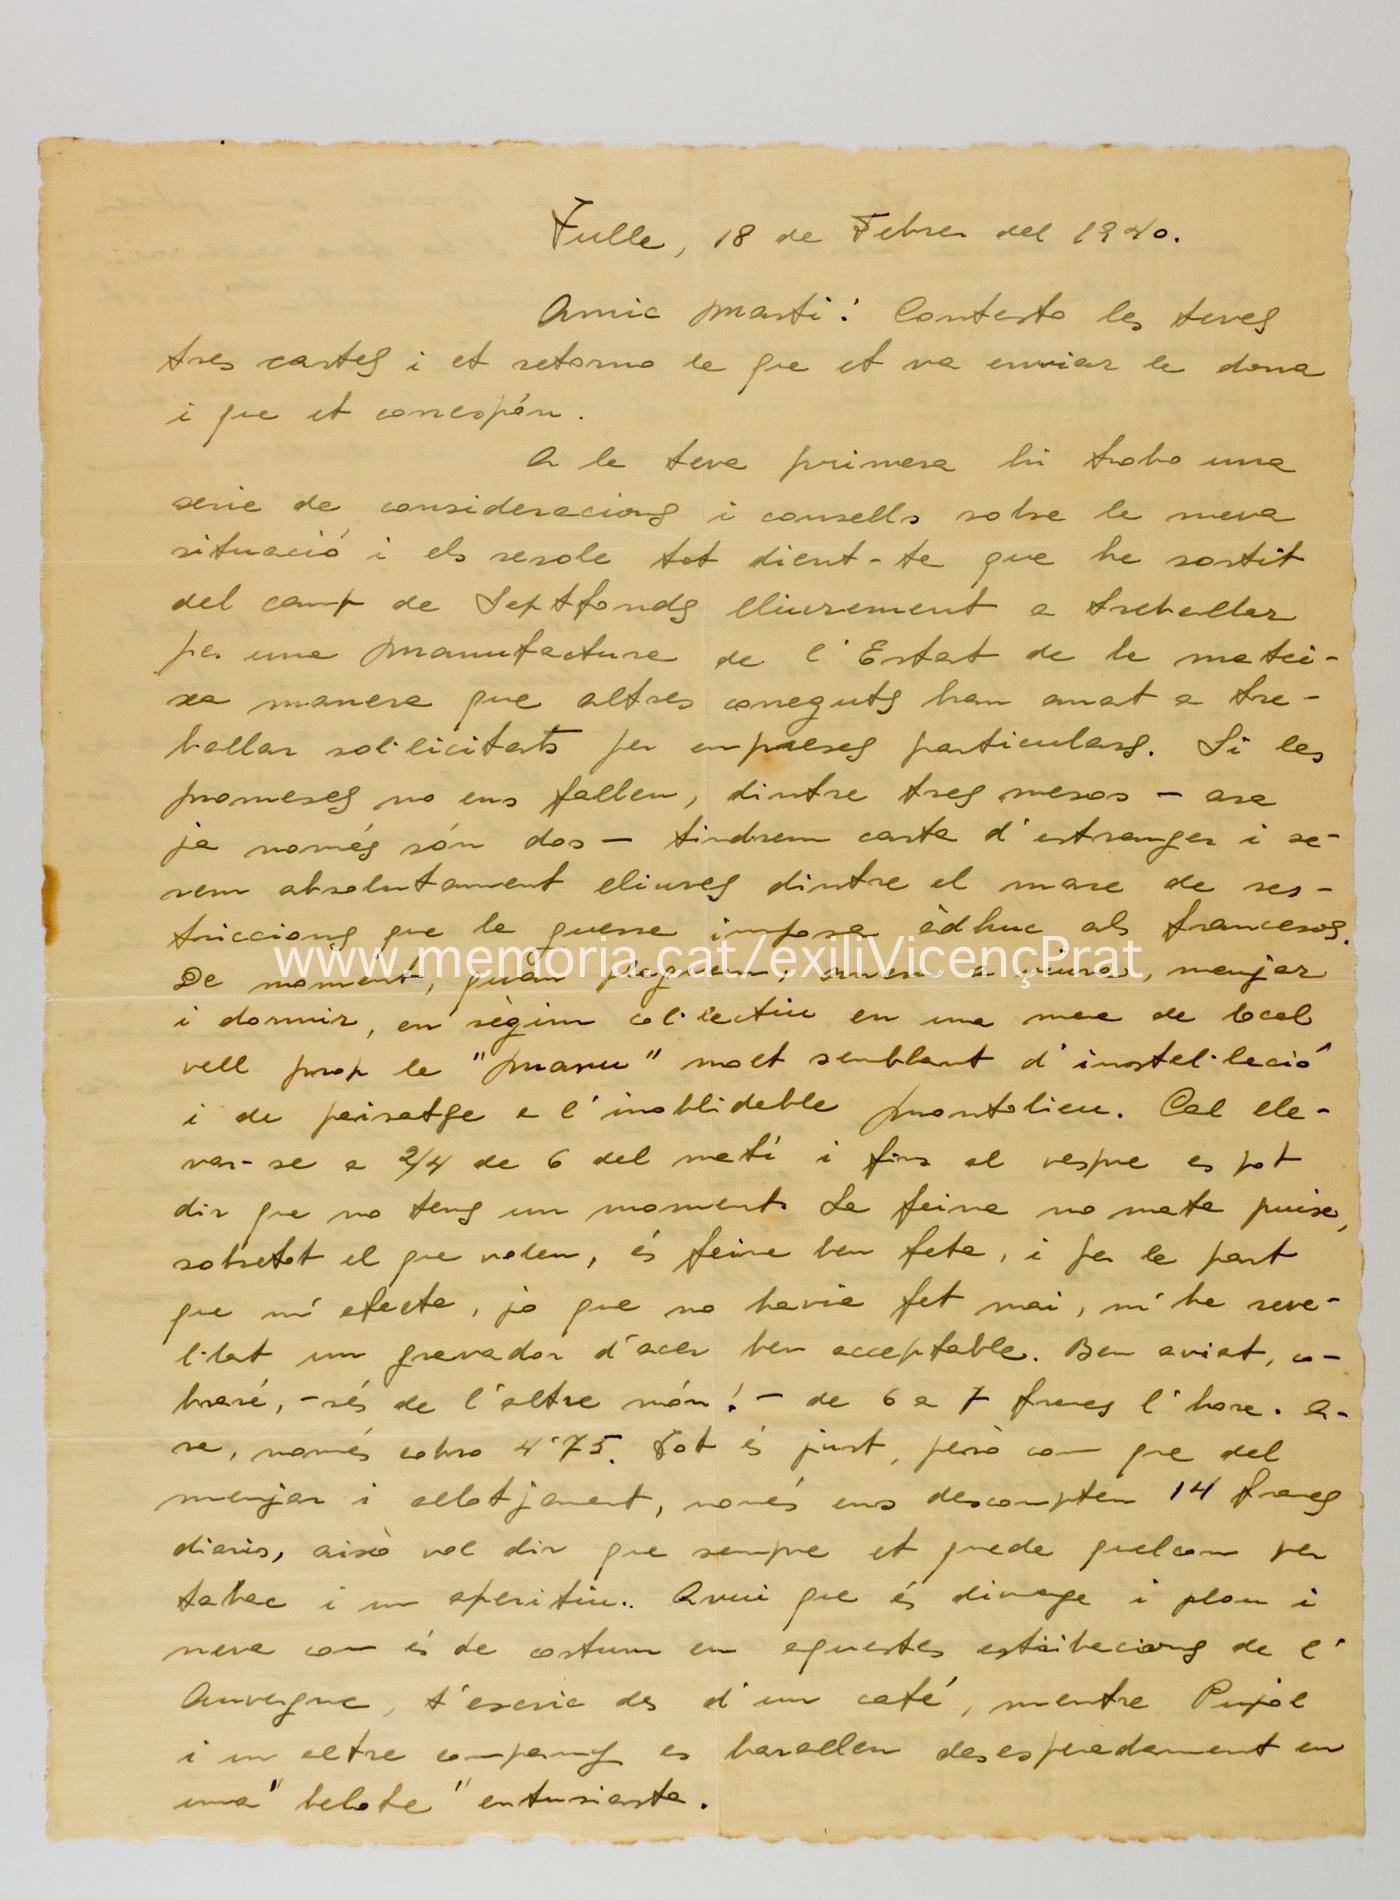 Tulle, 18 de Febrer del 1940.
Amic Martí: Contesto les teves
tres cartes i et retorno la que et va enviar la dona
i que et correspón.
A la teva primera hi trobo una
serie de consideracions i consells sobre la meva
situació i els resolc tot dient-te que he sortit
del camp de Septfonds lliurement a treballar
per una Manufactura de l'Estat de la matei-
xa manera que altres coneguts han anat a tre-
ballar sol·licitats per empreses particulars. Si les
promeses no ens fallen, dintre tres mesos — ara
ja només són dos — tindrem carta d'estranger i se-
rem absolutament lliures dintre el marc de res-
triccions que la guerra imposa àdhuc als francesos.
www.memoria.cat/exiliVicençPrat
De moment, quan pleguem, anem a viure, menjar
i dormir, en règim col·lectiu en una mena de local
vell prop la "Manu" molt semblant d'instal·lació
i de paisatge a l'inoblidable Montolieu. Cal lle-
var-se a 2/4 de 6 del matí i fins al vespre es pot
dir que no tens un moment. La feina no mata puix,
sobretot el que volen, és feina ben feta, i per la part
que m'afecta, jo que no havia fet mai, m'he reve-
l·lat un gravador d'acer ben acceptable. Ben aviat, co-
braré, – rés de l'altre món! – de 6 a 7 francs l'hora. A-
ra, només cobro 4'75. Tot és just, però com que del
menjar i allotjament, només ens descompten 14 francs
diaris, això vol dir que sempre et queda quelcom per
tabac i un aperitiu.. Avui que és diumenge i plou i
neva com és de costum en aquestes estribacions de l'
Auvergne, t'escric des d'un café, mentre Pujol
i un altre company es barallen desesperadament en
una "belote" entusiasta.